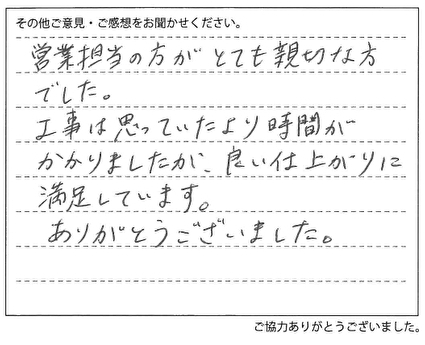 その他ご意見・ご感想をお聞かせください。
営業担当の方がとても親切な方
でした。
工事は思っていたより時間が
かかりましたが、良い仕上がりに
満足しています。
ありがとうございました。
ご協力ありがとうございました。